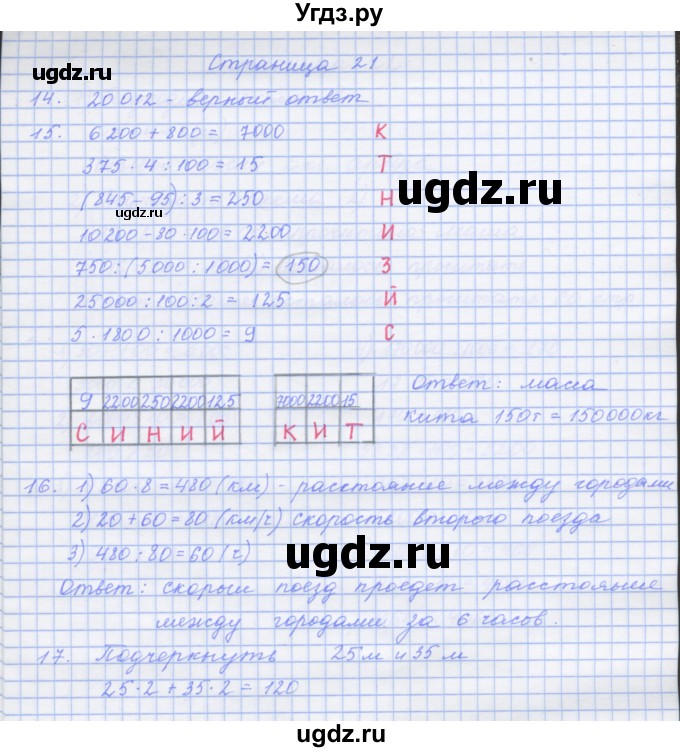 Угдз.ру
Страница 21
14. 20012 - верный ответ
15. 6200 + 800 = 7000 К
375 · 4 : 100 = 15 Т
(845 - 95) : 3 = 250 Н
10200 - 80 · 100 = 2200 И
750 : (5000 : 1000) = 150 З
25000 : 100 : 2 = 125 Й
5 · 1800 : 1000 = 9 С
9 2200 250 2200 125 7000 2200 15
С И Н И Й К И Т
Ответ: масса
кита 150т = 150000кг
16. 1) 60 · 8 = 480 (км) - расстояние между городами
2) 20 + 60 = 80 (км/ч) скорость второго поезда
3) 480 : 80 = 60 (ч)
Ответ: скорый поезд проедет расстояние
между городами за 6 часов.
17. Подчеркнуть 25м и 35м
25 · 2 + 35 · 2 = 120
ugdz.ru
ugdz.ru
ugdz.ru
ugdz.ru
ugdz.ru
ugdz.ru
ugdz.ru
ugdz.ru
Угдз.ру